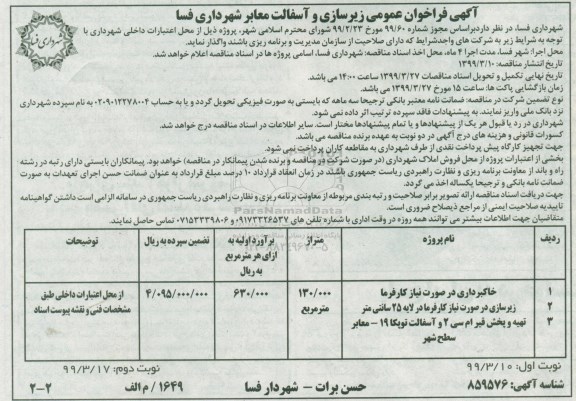 آگهی فراخوان عمومی زیرسازی و آسفالت معابر شهرداری فسا
شهرداری فسا، در نظر دارد براساس مجوز شماره ۹۹/۶۰ مورخ ۹۹/۲/۲۳ شورای محترم اسلامی شهر، پروژه ذیل از محل اعتبارات داخلی شهرداری با
توجه به شرایط زیر به شرکت های واجدشرایط که دارای صلاحیت از سازمان مدیریت و برنامه ریزی باشند واگذار نماید.
محل اجرا: شهر فسا، مدت اجرا ۴ ماه، محل اخذ اسناد مناقصه: شهرداری فسا، اسامی پروژه ها در اسناد مناقصه اعلام خواهد شد.
تاریخ انتشار مناقصه: ۱۳۹۹/۳/۱۰
تاریخ نهایی تکمیل و تحویل اسناد مناقصات ۱۳۹۹/۳/۲۷ ساعت ۱۴:۰۰ می باشد.
زمان بازگشایی پاکت ها: ساعت ۱۵ مورخ ۱۳۹۹/۳/۲۷ می باشد.
نوع تضمین شرکت در مناقصه: ضمانت نامه معتبر بانکی ترجیحا سه ماهه که بایستی به صورت فیزیکی تحویل گردد و یا به حساب ۰۲۰۹۰۱۲۲۷۸۰۰۴ به نام سپرده شهرداری
نزد بانک ملی واریز نمایند. به پیشنهادات فاقد سپرده ترتیب اثر داده نمی شود.
شهرداری در رد یا قبول هر یک از پیشنهادها و یا تمام پیشنهادها مختار است. سایر اطلاعات در اسناد مناقصه درج خواهد شد.
کسورات قانونی و هزینه های درج آگهی در دو نوبت به عهده برنده مناقصه می باشد.
جهت تجهیز کارگاه پیش پرداخت نقدی از طرف شهرداری به مقاطعه کاران پرداخت نمی شود.
بخشی از اعتبارات پروژه از محل فروش املاک شهرداری (در صورت شرکت در مناقصه و برنده شدن پیمانکار در مناقصه) خواهد بود. پیمانکاران بایستی دارای رتبه در رشته
راه و باند از معاونت برنامه ریزی و نظارت راهبردی ریاست جمهوری باشند در زمان انعقاد قرارداد ۱۰ درصد مبلغ قرارداد به عنوان ضمانت حسن اجرای تعهدات به صورت
ضمانت نامه بانکی و ترجیحا یکساله اخذ می گردد.
جهت دریافت اسناد مناقصه ارائه تصویر برابر صلاحیت و رتبه بندی مربوطه از معاونت برنامه ریزی و نظارت راهبردی ریاست جمهوری در سامانه الزامی است داشتن گواهینامه
تاییدیه صلاحیت ایمنی از مراجع ذیصلاح ضروری است.
متقاضیان جهت اطلاعات بیشتر می توانند همه روزه در وقت اداری با شماره تلفن های ۰۹۱۷۳۳۲۶۵۳۷ و ۰۷۱۵۳۳۳۹۸۰۶ تماس حاصل نمایند.
ردیف نام پروژه متراژ برآورد اولیه به ازای هر مترمربع به ریال تضمین سپرده به ریال توضیحات
۱ خاکبرداری در صورت نیاز کارفرما
۲ زیرسازی در صورت نیاز کارفرما در لایه ۲۵ سانتی متر
۳ تهیه و پخش قیر ام سی ۲ و آسفالت توپکا ۱۹ – معابر سطح شهر
۱۳۰/۰۰۰ مترمربع ۶۳۰/۰۰۰ ۴/۰۹۵/۰۰۰/۰۰۰ از محل اعتبارات داخلی طبق مشخصات فنی و نقشه پیوست اسناد
نوبت اول: ۹۹/۳/۱۰ نوبت دوم: ۹۹/۳/۱۷
شناسه آگهی: ۸۵۹۵۷۶ حسن برات – شهردار فسا ۱۶۴۹/ م الف ۲-۲